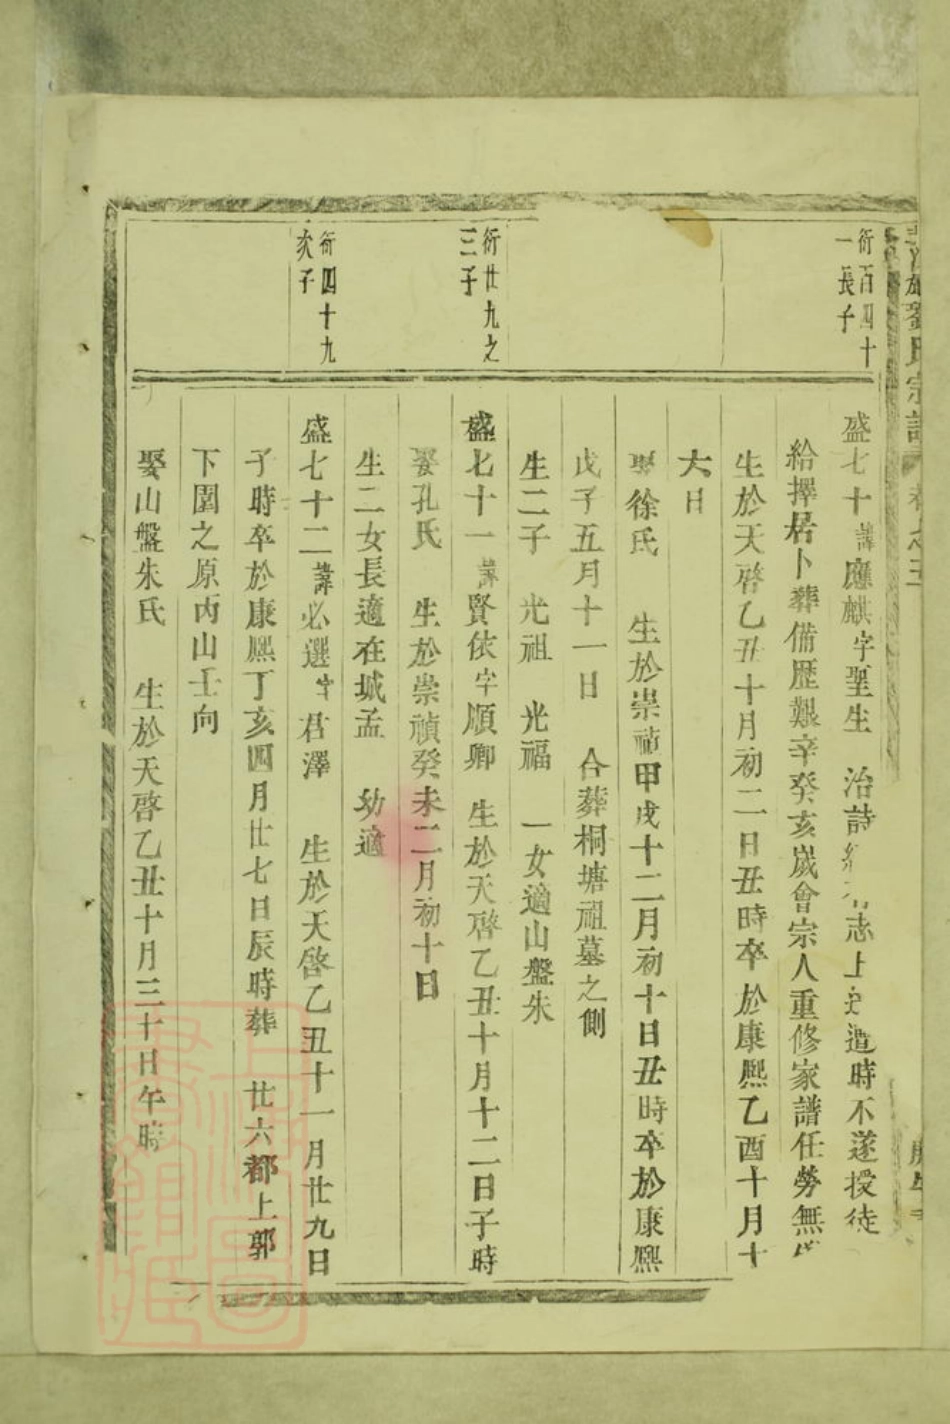 劉氏宗譜
衍百四十
一長子
盛七十諱應麒字聖生 治詩 志上 遭時不遂授徒
給擇居卜葬備歷艱辛癸亥歲會宗人重修家譜任勞無
生於天啓乙丑十月初二日丑時卒於康熙乙酉十月十
六日
娶徐氏 生於崇禎甲戌十二月初十日丑時卒於康熙
戊子五月十一日 合葬桐塘祖墓之側
生二子 光祖 光福 一女適山盤朱
衍廿九之
三子
盛七十一諱賢依字順卿 生於天啓乙丑十月十二日子時
娶孔氏 生於崇禎癸未二月初十日
生二女長適在城孟 幼適
衍四十九
次子
盛七十二諱必選字君澤 生於天啓乙丑十一月廿九日
子時卒於康熙丁亥四月廿七日辰時葬 廿六都上郭
下園之原丙山壬向
娶山盤朱氏 生於天啓乙丑十月三十日午時